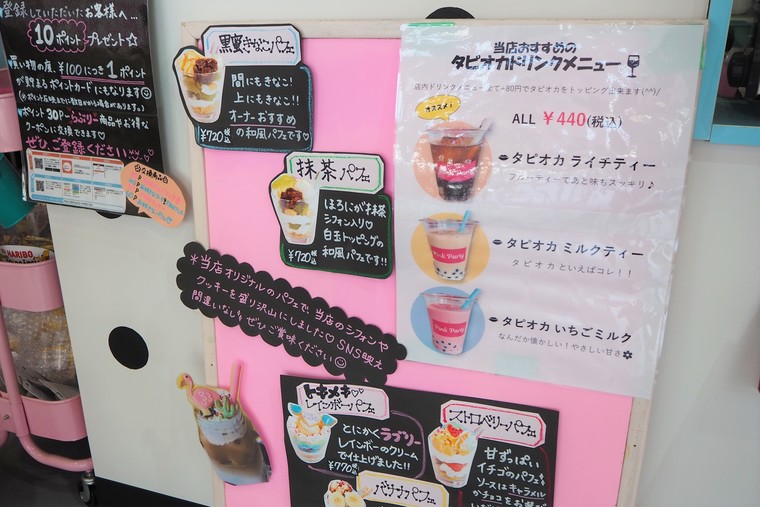 登録していただいたお客様へ…
10ポイントプレゼント☆
買い物の度、¥100につき1ポイント
が貯まるポイントカードにもなります
ポイント30P→
商品やお得な
クーポンに交換できます♡
ぜひご登録ください
HARIBO
黒蜜きなこパフェ
間にもきなこ!
上にもきなこ!!
オーナーおすすめ
の和風パフェです♡
¥720税込
抹茶パフェ
ほろにが抹茶
シフォン入り♡
白玉トッピングの
和風パフェです!!
¥720税込
*当店オリジナルのパフェで、当店のシフォンや
クッキーを盛り沢山にしました♡SNS映え
間違いなし!ぜひご賞味ください☺
トキメキ♡
レインボーパフェ
とにかくラブリー
レインボーのクリーム
で仕上げました!!
¥770税込
ストロベリーパフェ
甘ずっぱい
イチゴのパフェ
ソースはキャラメル
かチョコをお選び
バナナパフェ
当店おすすめの
タピオカドリンクメニュー
店内ドリンクメニュー全て+80円でタピオカをトッピング出来ます(^^)/
オススメ!
ALL ¥440(税込)
タピオカ ライチティー
フルーティーであと味もスッキリ♪
タピオカ ミルクティー
タピオカといえばコレ!!
Pink Party
タピオカ いちごミルク
なんだか懐かしい!やさしい甘さ
Pink Party